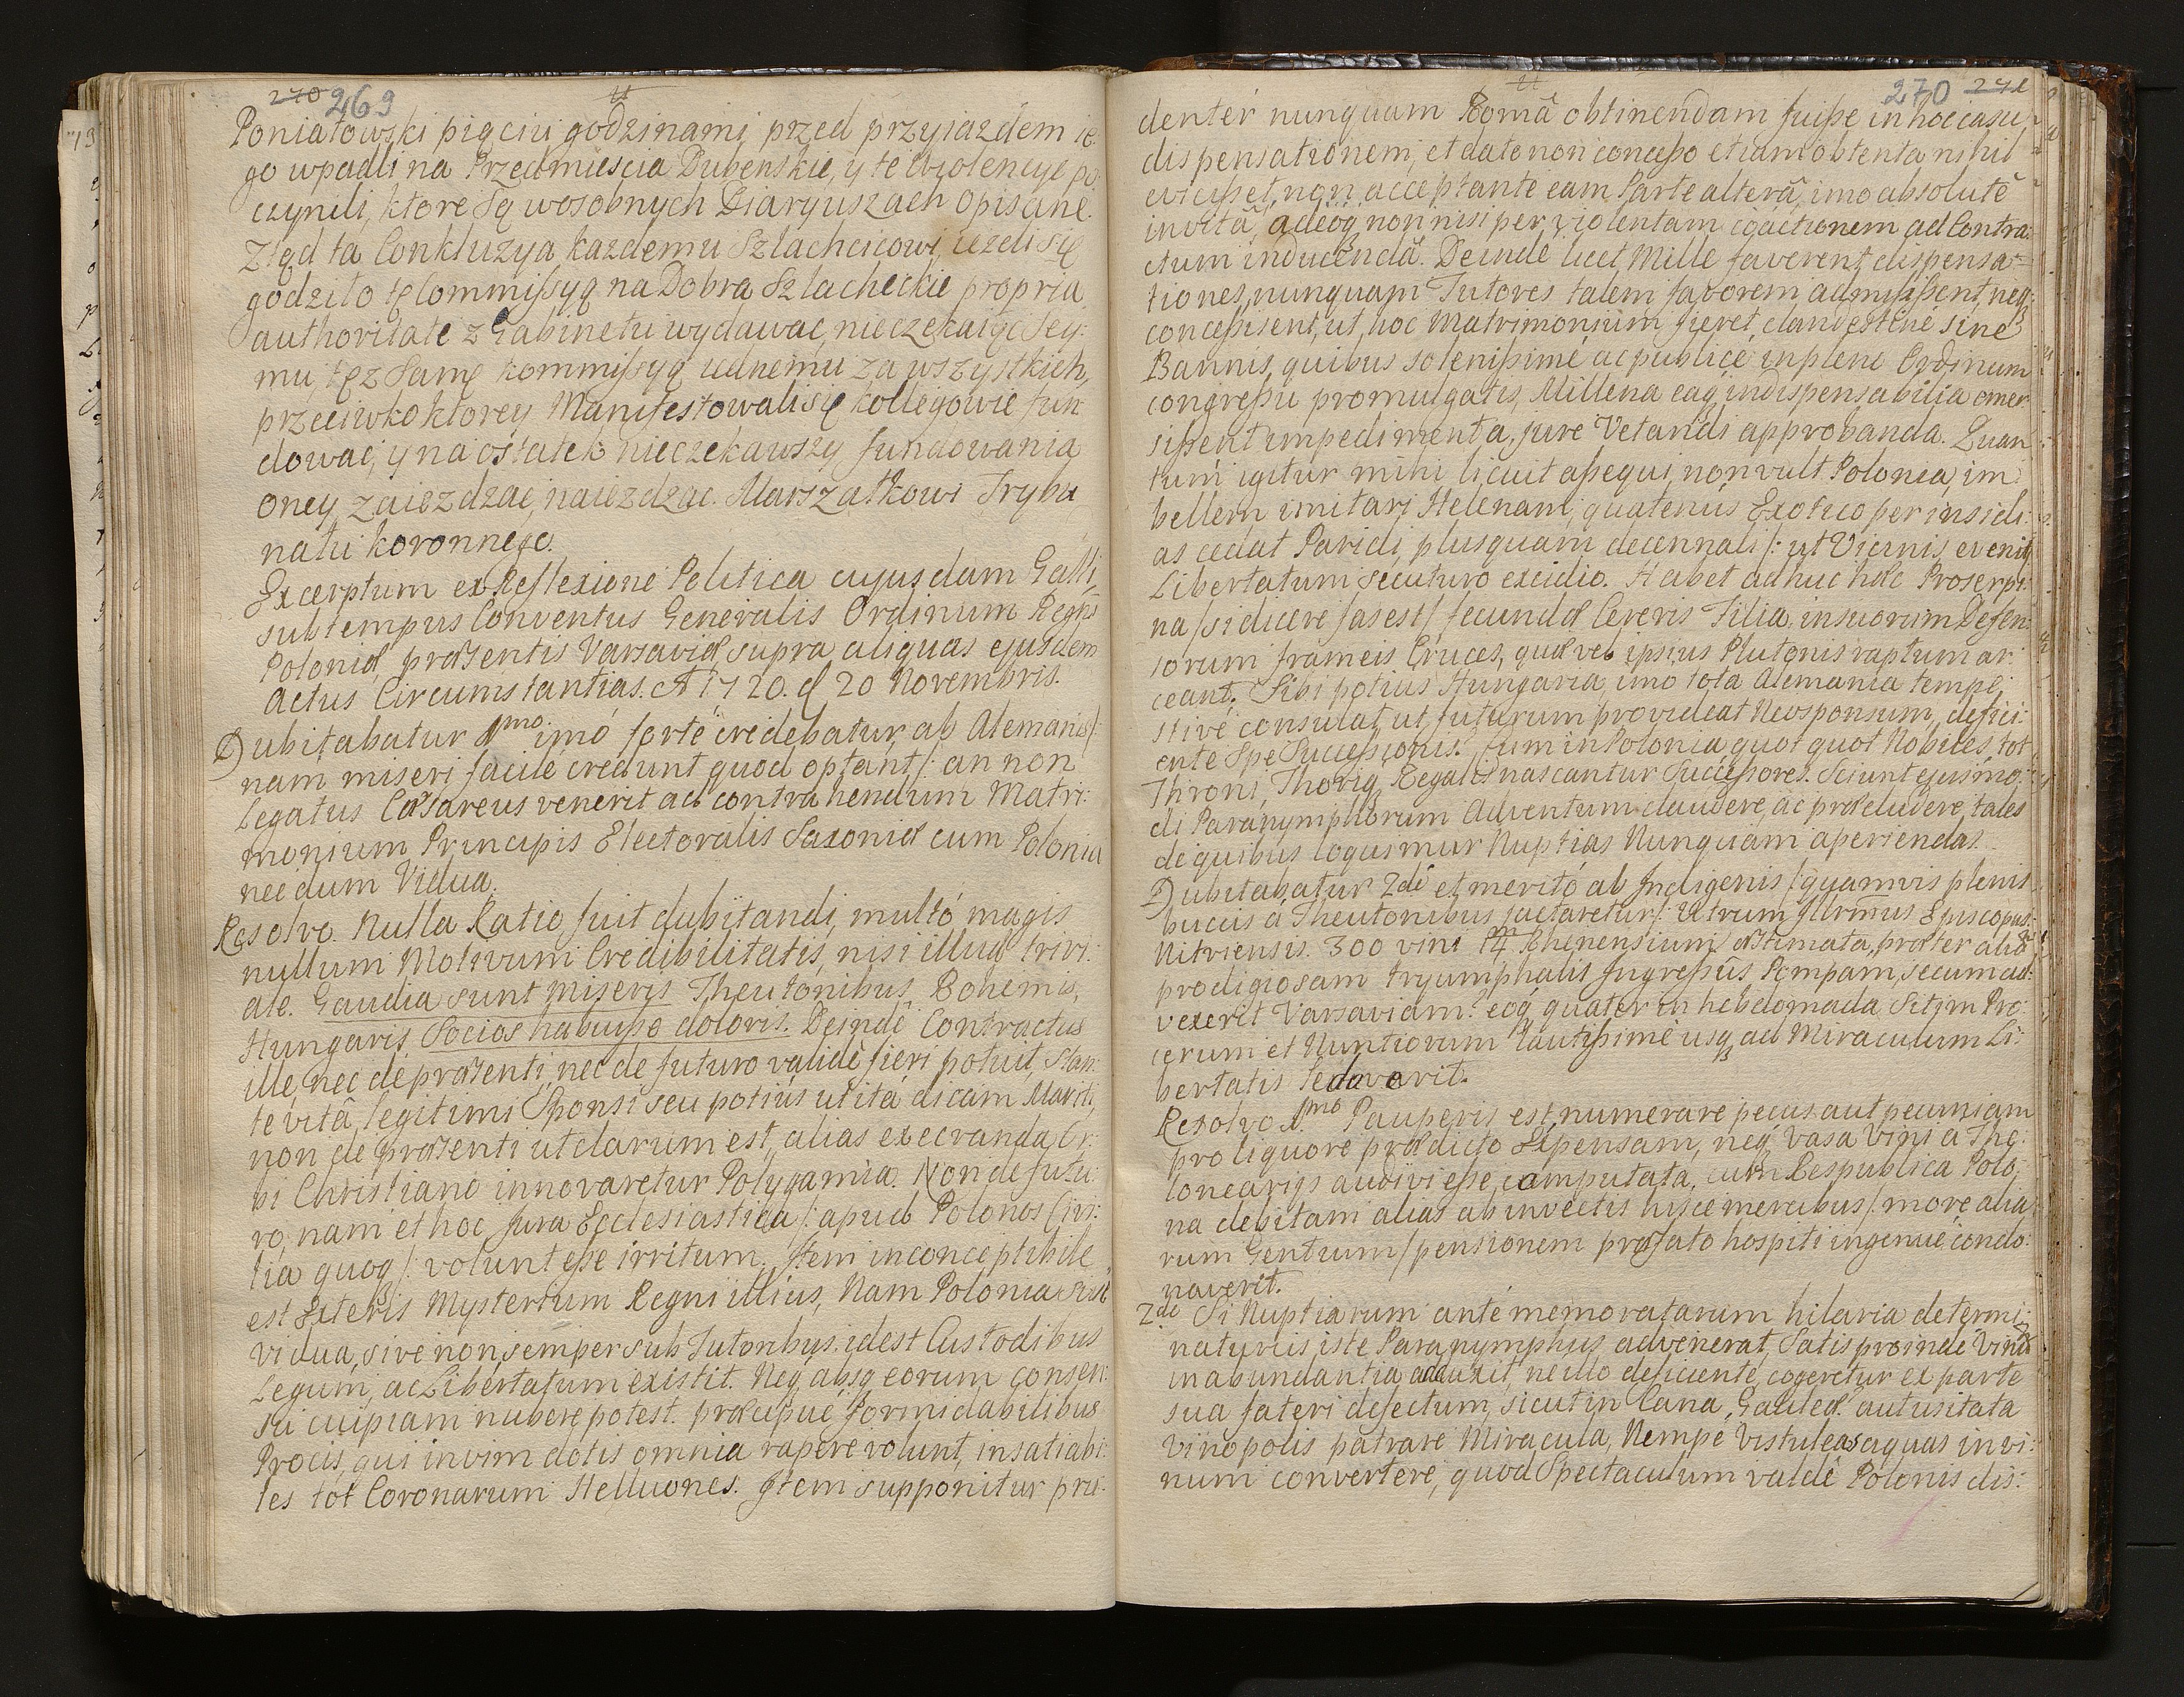 270 269
Poniatowski pięciu godzinami, przed przyiazdem ie
go wpadli na Przedmiescia Dubenskie, y te Wiolencye po
czynili, ktore są wosobnych Diaryuszach opisane.
Ztąd ta Conkluzya kazdemu Szlachcicowi, iezeli się
godziło tę Commissyą na Dobra Szlacheckie propria
authoritate z Gabinetu wydawac, nieczekaiąc Sey:
mu, tęz Samę kommissyą iednemu za wszystkich,
przeciwko ktorey Manifestowali się kollegowie fun
dowac, y na ostatek nieczekawszy fundowania
oney, zaiezdzac, naiezdzac. Marszałkowi Trybu
nału koronnego.
Excerptum ex Reflexione Politica cujusdam Galli,
sub tempus Conventus Generalis Ordinum Regni
Poloniæ, præsentis Varsaviæ, supra aliquas ejusdem
Actus Circumstantias. A 1720. d 20 Novembris.
Dubitabatur 1mo. imò fortè credebatur ab Alemanis/:
nam miseri facilè credunt quod optant/: an non
Legatus Cæsareus venerit ad contrahendum Matri:
monium Principis Electoralis Saxoniæ cum Polonia
nec dum Vidua.
Resolvo. Nulla Ratio fuit dubitandi, multò magis
nullum Motivum Credibilitatis, nisi illud trivi:
ale. Gaudia sunt miseris Theutonibus, Bohemis,
Hungaris, Socios habuisse doloris. Deinde Contractus
ille, nec de præsenti, nec de futuro validè fieri potuit, stan:
te vitâ legitimi Sponsi seu potius ut ita dicam Mariti,
non de præsenti ut clarum est, alias execranda Or:
bi Christiano innovaretur Polygamia. Non de futu:
ro, nam et hoc Jura Ecclesiastica /: apud Polonos Civi:
lia quoq /: volunt esse irritum. Item inconceptibile
est Exteris Mysterium Regni illius, Nam Polonia sive
vidua, sive non, semper sub Tutoribus. idest Custodibus
Legum, ac Libertatum existit. Neq absq eorum consen:
su cuipiam nubere potest. præcipuè formidabilibus
Procis, qui in vim dotis omnia rapere volunt, insatiabi:
les tot Coronarum Helluones. Item supponitur pru:
270 271
denter nunquam Româ obtinendam fuisse in hoc casu
dispensationem, et dato non concesso etiam obtenta nihil
evicisset, non acceptante eam Parte alterâ, imo absolutè
invitâ, adeoq non nisi per violentam coactionem ad Contra:
ctum inducendâ. Deinde licet Mille faverent dispensa=
tiones, nunquam Tutores talem favorem admisissent, neq
concessisent, ut hoc Matrimonium fieret, clandestinè sine
Bannis, quibus solenissimè ac publicè in pleno Ordinum
congressu promulgatis, Millena eaq indispensabilia emer:
sissent impedimenta, jure Vetandi approbanda. Quan
tum igitur mihi licuit assequi, non vult Polonia, im
bellem imitari Helenam, quatenus Exotico per insidi:
as cedat Paridi, plusquam decennali /: ut Viennis evenit
Libertatum secuturo excidio. Habet adhuc hæc Proserpi:
na /si dicere fas est/ fecundæ Cereris Filia, insuorum Defen:
sorum frameis Cruces, quæ vel ipsius Plutonis raptum ar:
ceant. Sibi potius Hungaria, imo tota Alemania tempe:
stivè consulat, ut futurum provideat Neosponsum, defici:
ente Spe Successionis. Cum in Polonia quot quot Nobiles, tot
Throni, Thoriq Regalis nascantur Successores. Sciunt ejusmo:
di Paranymphorum Adventum claudere, ac præcludere, tales
de quibus loquimur Nuptias Nunquam aperiendas.
Dubitabatur 2dò et meritò ab Indigenis /quamvis plenis
buccis à Theutonibus jactaretur/: Utrum Illrmus Episcopus
Nitriensis. 300 vini Rhenensium æstimata, præter alia
prodigiosam tryumphalis Ingressûs Pompam, secum ad:
vexerit Varsaviam? eoq quater in hebdomada Sitim Pro:
cerum et Nuntiorum lautissimè usq ad Miraculum Li:
bertatis sedaverit.
Resolvo 1mo Pauperis est numerare pecus aut pecuniam
pro liquore prædicto Expensam, neq vasa Vini à The:
lonearijs audivi esse computata, cum Respublica Polo:
na debitam alias ab invectis hisce mercibus /: more alia:
rum Gentium/ pensionem præfato hospiti ingenuè condo:
naverit.
2do Si Nuptiarum antè memoratarum hilaria determi:
naturus iste Paranymphus advenerat, Satis proinde Vini
in abundantia adduxit, ne illo deficiente, cogeretur ex parte
sua fateri defectum, sicut in Cana, Galileæ. aut usitata
Vinopolis patrare Miracula, Nempe Vistuleas aquas in vi:
num convertere, quod Spectaculum valdè Polonis dis: